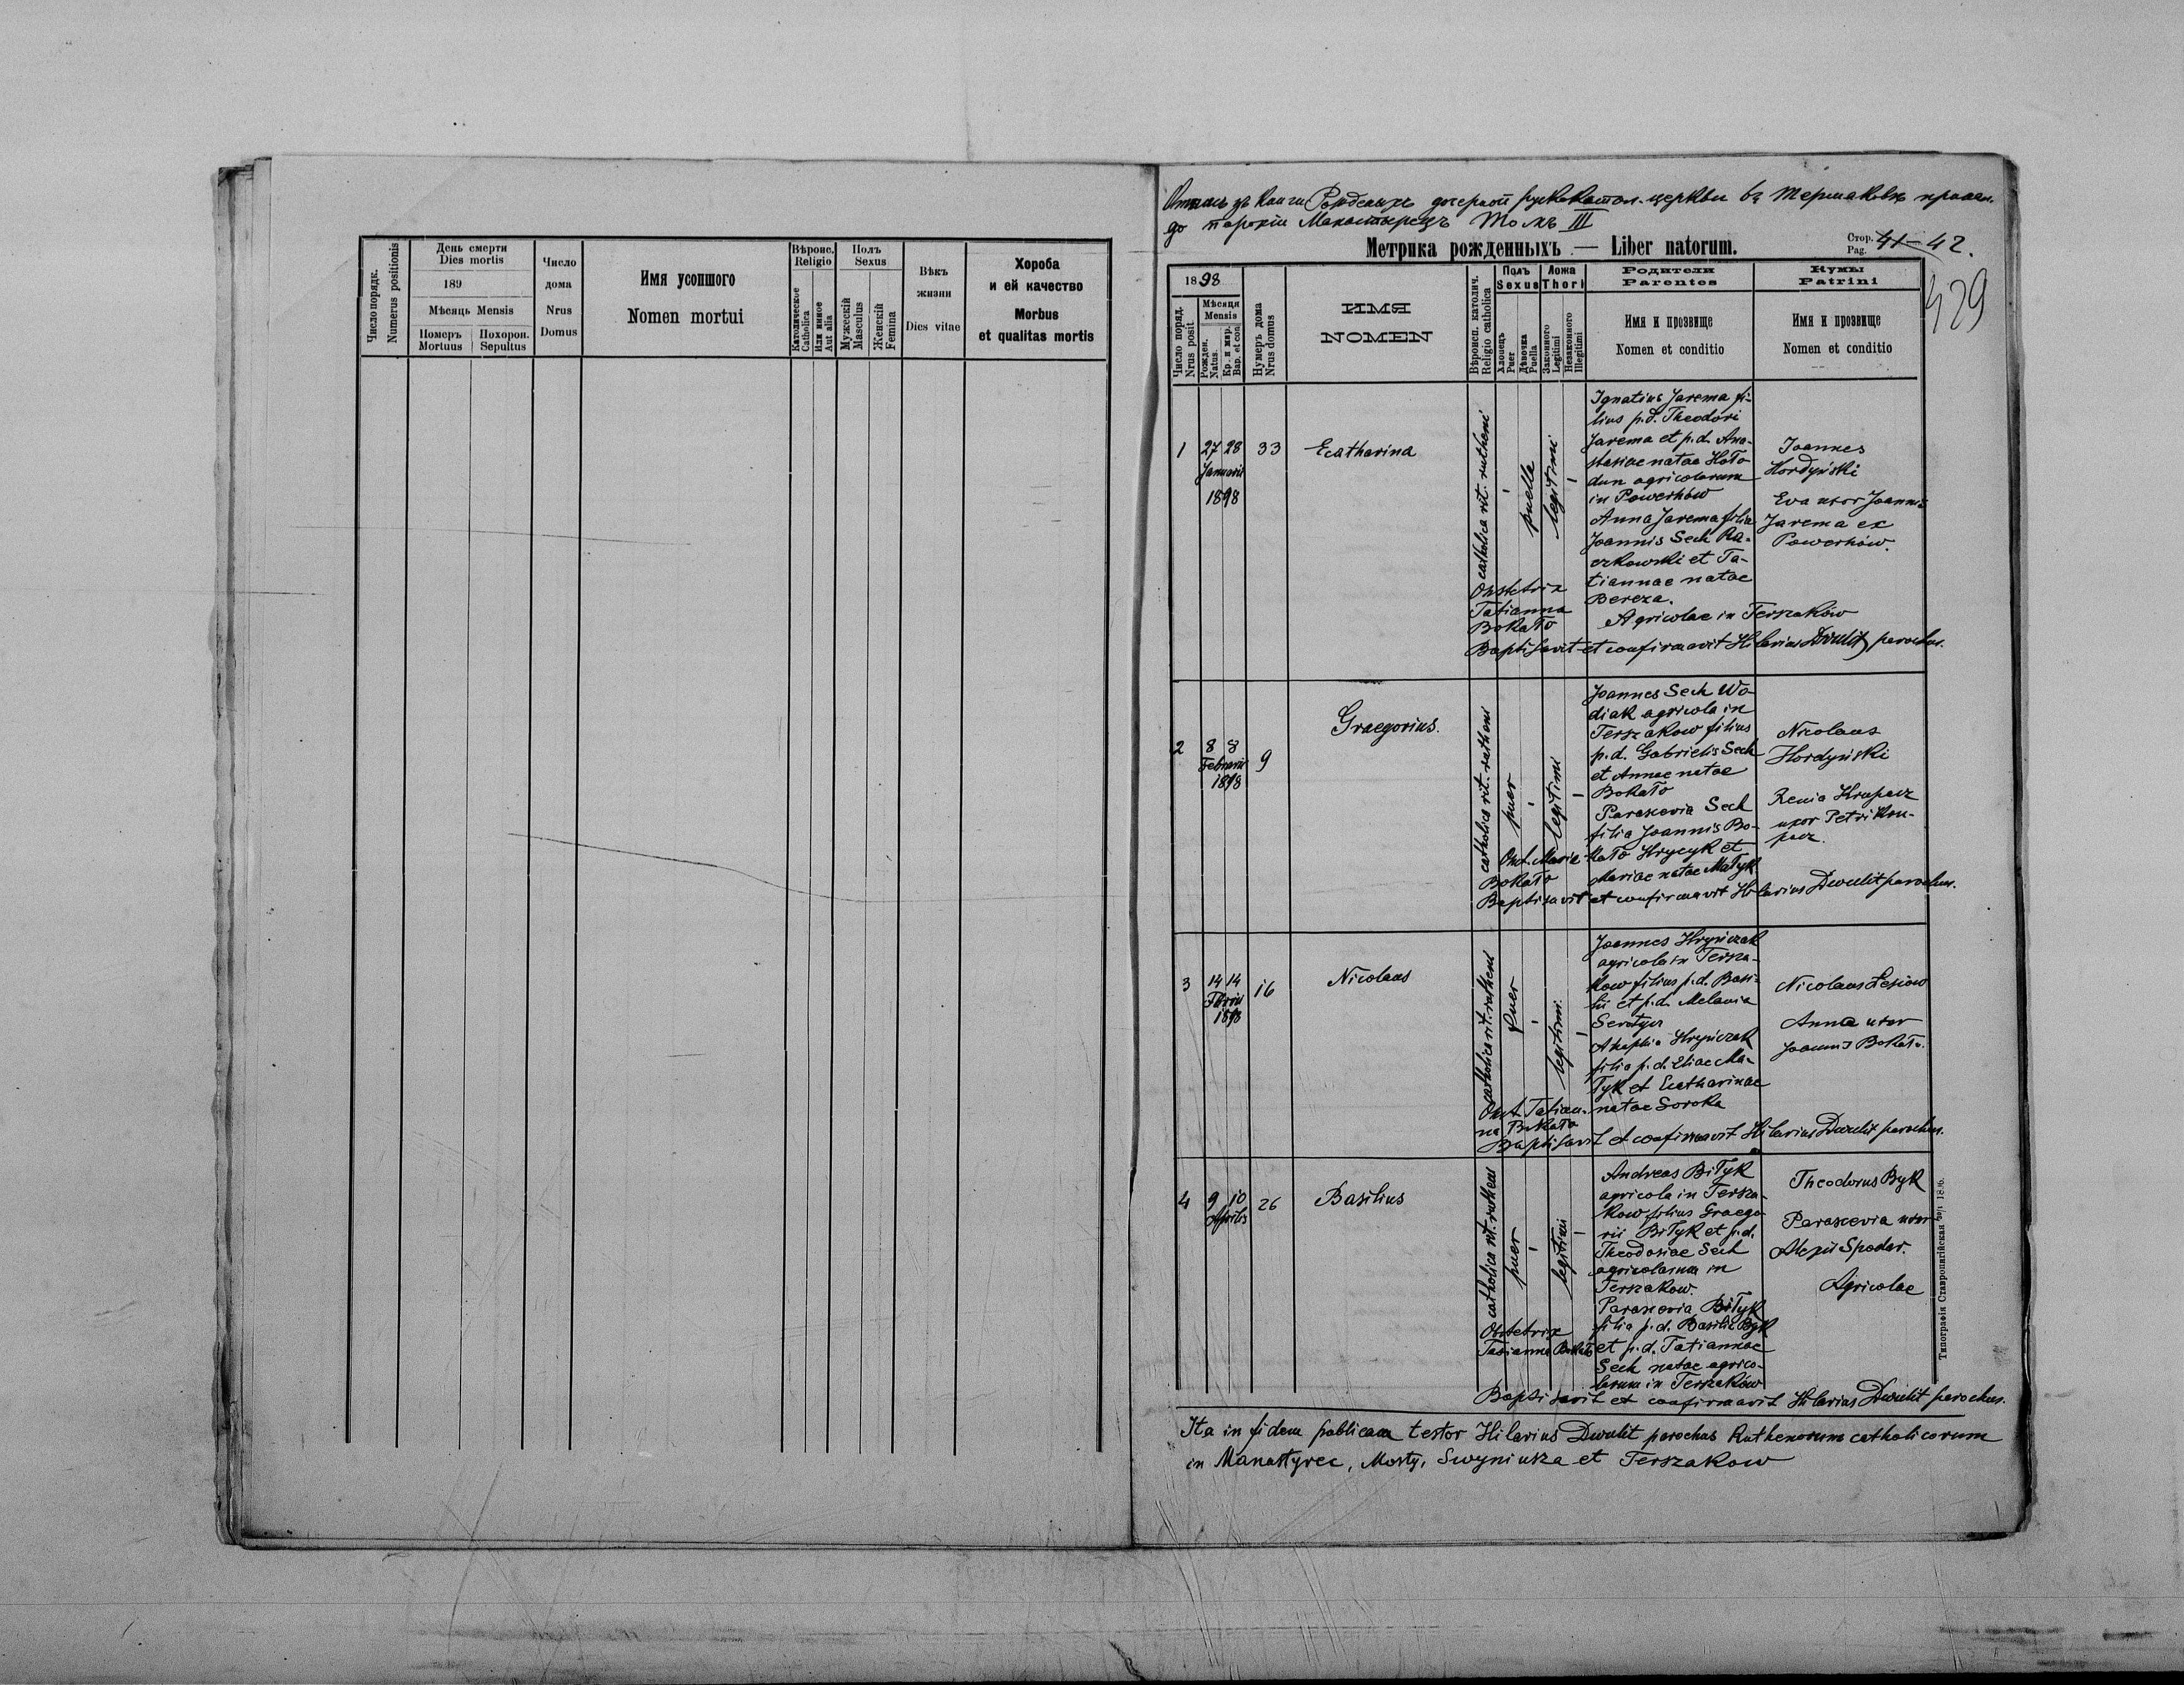 Число порядк.
Numerus positionis
День смерти
Dies mortis
189
Мѣсяць Mensis
Померъ
Mortuus
Похорон.
Sepultus
Число
дома
Nrus
Domus
Имя усопшого
Nomen mortui
Вѣроис.
Religio
Католическое
Catholica
Или инное
Aut alia
Полъ
Sexus
Мужескій
Masculus
Женскій
Femina
Вѣкъ
жизни
Dies vitae
Хороба
и ей качество
Morbus
et qualitas mortis
церкви въ Тершаковѣ
до парохіи Манастырець Томъ III
Метрика рожденныхъ — Liber natorum.
Стор.
Pag. 41-42.
429
1898
Число поряд.
Nrus posit
Мѣсяця
Mensis
Рожден.
Natus.
Кр. и мир.
Bap. et con
Нумеръ дома
Nrus domus
ИМЯ
NOMEN
Вѣроисп. католич.
Religio catholica
Полъ
Sexus
Хлопець
Puer
Дѣвочка
Puella
Ложа
Thori
Законного
Legitimi
Незаконного
Illegitimi
Родители
Parentes
Имя и прозвище
Nomen et conditio
Кумы
Patrini
Имя и прозвище
Nomen et conditio
1
27 28
Januarii
1898
33
Ecatharina
catholica rit. rutheni
puella
legitimi
Ignatius Jarema fi-
lius p.d. Theodori
Jarema et p.d. Ana-
stasiae natae Hoło
dun agricolarum
in Powerhów
Anna Jarema filia
Joannis Sech Ra-
czkowski et Ta-
tiannae natae
Bereza.
Agricolae in Terszaków
Joannes
Hordyński
Eva uxor Joannis
Jarema ex
Powerhów.
Obstetrix
Tatianna
Bokało
Baptisavit et confirmavit Hilarius Dwulit parochus.
2
8 8
Februarii
1898
9
Graegorius.
catholica rit. rutheni
puer
legitimi
Joannes Sech Wo-
diak agricola in
Terszakow filius
p.d. Gabrielis Sech
et Annae natae
Bokało
Parascevia Sech
filia Joannis Bo-
kało Hrycyk et
Mariae natae Małyk
Nicolaus
Hordyński
Renia Krupacz
uxor Petri Kru-
pacz.
Obst. Maria
Bokało
Baptisavit et confirmavit Hilarius Dwulit parochus.
3
14 14
Februarii
1898
16
Nicolaus
catholica rit. rutheni
puer
legitimi.
Joannes Hryńczak
agricola in Tersza-
kow filius p.d. Basi-
lii et p.d. Melania
Ahaphia Hryńczak
filia p.d. Eliae Ma-
łyk et Ecatharinae
natae Soroka
Nicolaus Lesiow
Anna uxor
Joannis Bokało.
Obst. Tatian-
na Bokało
Baptisavit et confirmavit Hilarius Dwulit parochus.
4
9 10
Aprilis
26
Basilius
catholica rit. rutheni
puer
legitimi
Andreas Biłyk
agricola in Tersza-
kow filius Graego
rii Biłyk et p.d.
Theodosiae Sech
agricolarum in
Terszakow.
Parascevia Biłyk
filia p.d. Basilii Byk
et p.d. Tatiannae
Sech natae agrico-
larum in Terszaków
Theodorus Byk
Parascevia uxor
Alexii Spodar.
Agricolae
Obstetrix
Tatianna Bokało
Baptisavit et confirmavit Hilarius Dwulit parochus.
Ita in fidem publicam testor Hilarius Dwulit parochus Ruthenorum catholicorum
in Manastyrec, Mosty, Swyniusza et Terszakow
Типографія Ставропигійская